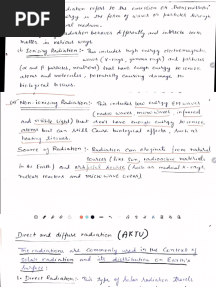 PDF
radiation refers to the emission or transmission
of energy in the form of waves or particles through
medium.
radiation behaves differently and interacts with
matter in
i) Ionizing Radiation:- This includes high energy electromagnetic
waves (X-rays, gamma rays) and particles
(α and β particles, neutrons) that have enough energy to ionize
atoms and molecules, potentially causing damage to
biological tissues.
(ii) Non Ionizing Radiation:- This includes low energy EM waves
(radio waves, microwaves, infrared
and visible light) that don't have enough energy to ionize
atoms but can still cause biological effects, such as
heating tissues.
Source of Radiation:- Radiation can originate from natural
sources (like sun, radioactive materials
in the Earth) and artificial sources (such as medical X-rays,
nuclear reactors and microwave ovens).
Direct and diffuse radiation (AKTU)
The radiations are commonly used in the context of
solar radiation and its distribution on Earth's
surface:
i) Direct Radiation:- This type of solar radiation travels